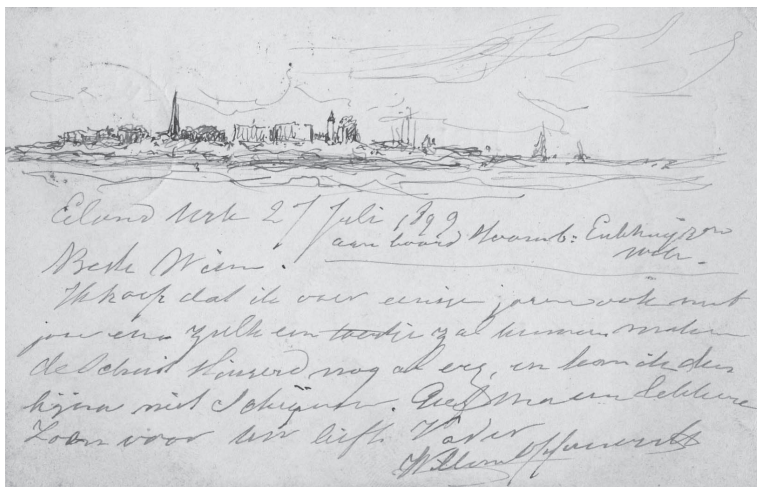 Eiland Urk 27 Juli 1899
aan boord Stoomb: Enkhuyzen
Beste Wim.
Ik hoop dat ik over eenige jaren ook met
jou eens zulk een toertje zal kunnen maken
de Schuit slingerd nog al erg, en kan ik dus
bijna niet Schrijven. Geef Ma een lekkere
Zoen voor Uw liefh. Vader
Willem